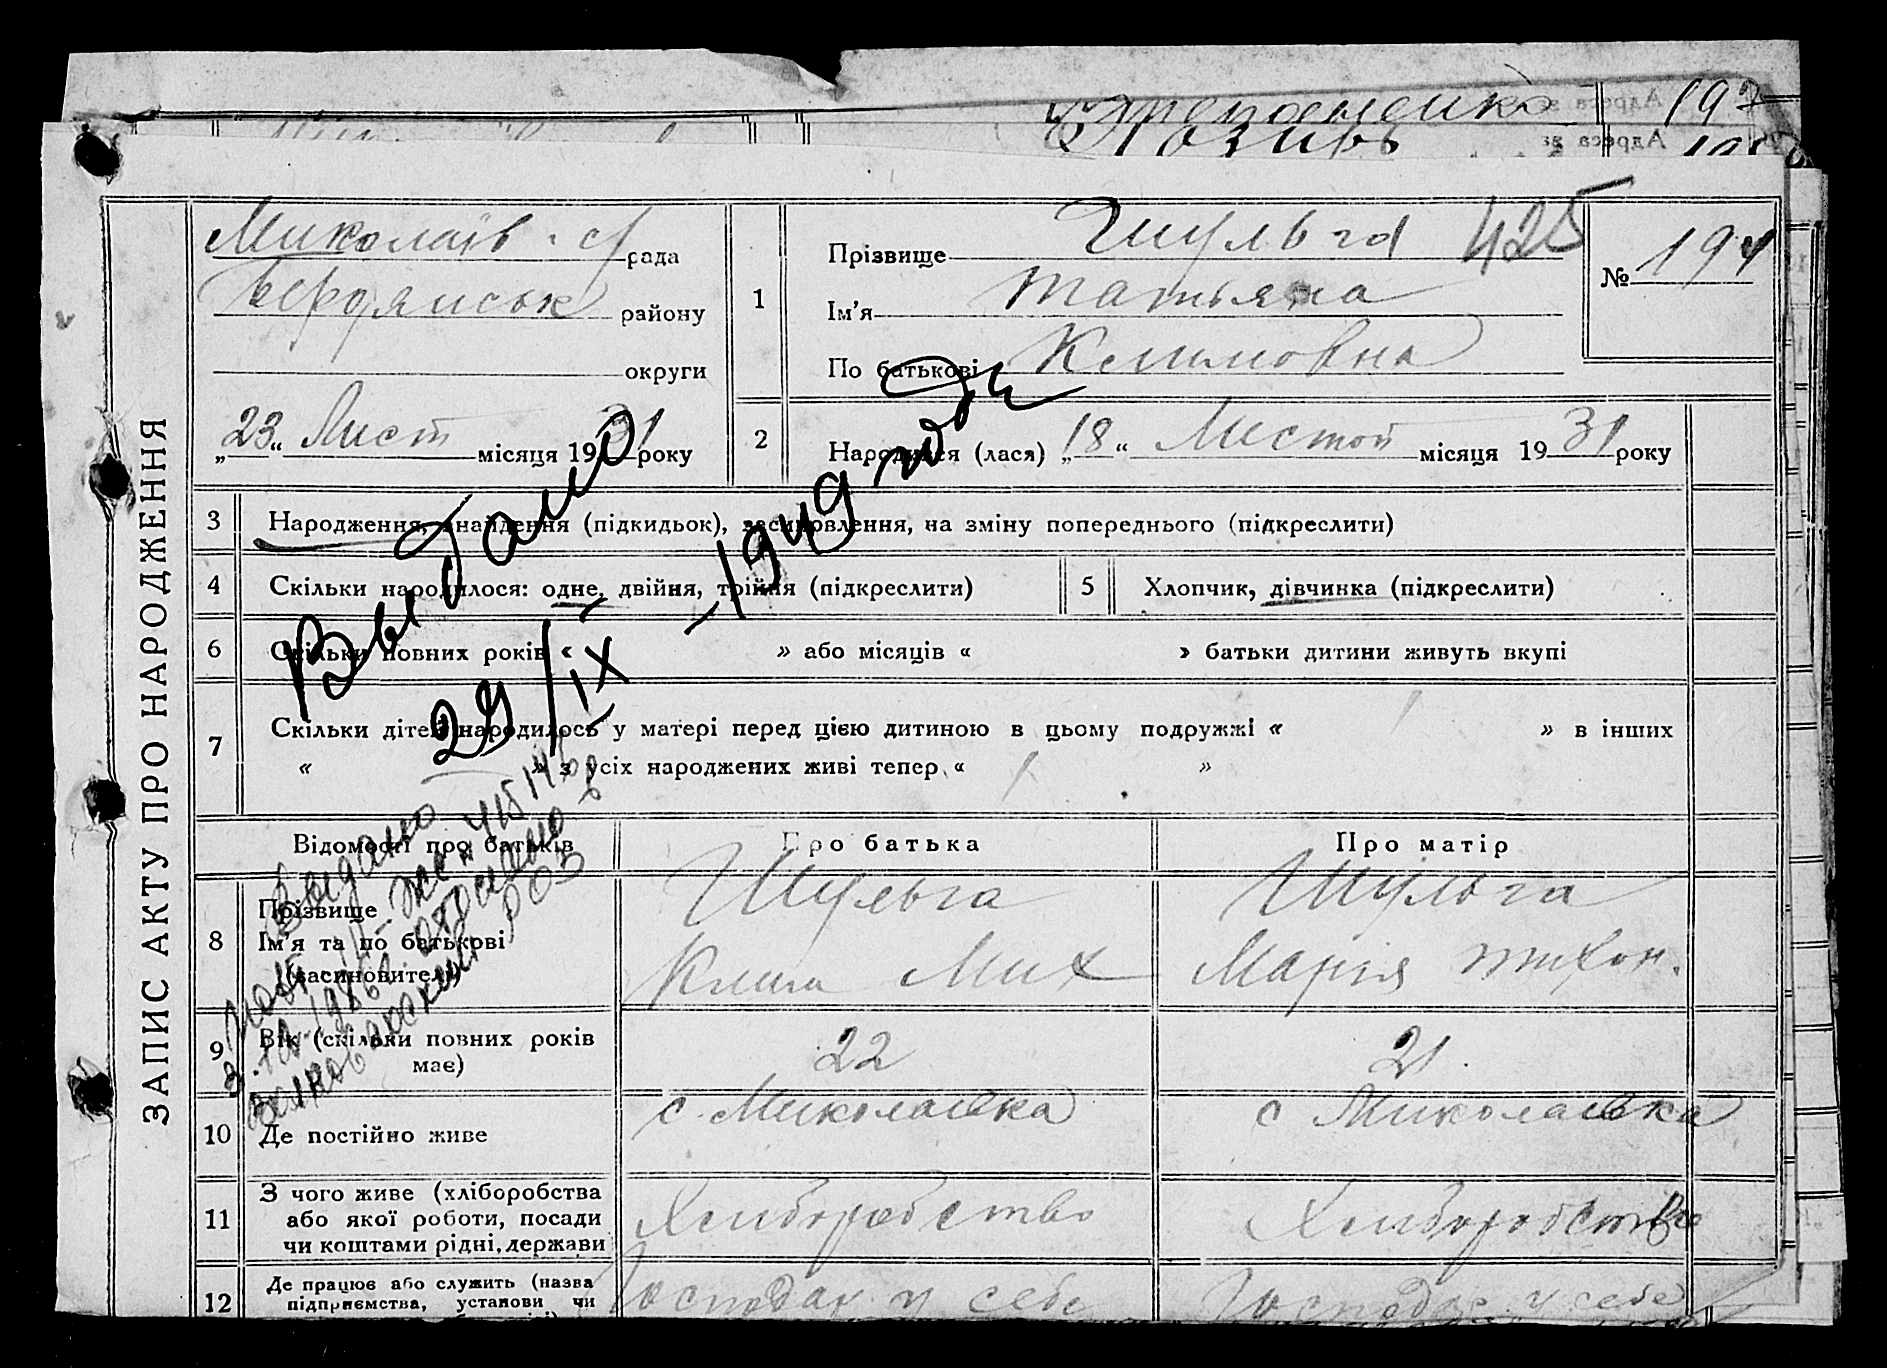 Степаненко 197
Козирь
Адреса
Адреса за
ЗАПИС АКТУ ПРО НАРОДЖЕННЯ
Миколаїв. с/рада
Бердянськ району
округи
„23“ Лист місяця 1931 року
1
Прізвище Шульга 425
Ім'я Татьяна
По батькові Климовна
№ 194
2
Народився (лася) „18“ Листоп місяця 1931 року
3 Народження, знайдення (підкидьок), засиновлення, на зміну попереднього (підкреслити)
4 Скільки народилося: одне, двійня, трійня (підкреслити)
5 Хлопчик, дівчинка (підкреслити)
6 Скільки повних років « » або місяців « » батьки дитини живуть вкупі
7 Скільки дітей народилось у матері перед цією дитиною в цьому подружжі « 1 » в інших
« — » з усіх народжених живі тепер « 1 »
Выдано
29/IX - 1949 году
Відомості про батьків
Про батька
Про матір
8 Прізвище
Ім'я та по батькові
(засиновителя)
Шульга
Клим Мих
Шульга
Марія Тихон.
Выдано
9 Вік (скільки повних років
має)
22
21.
10 Де постійно живе
с. Миколаївка
с Миколаївка
11 З чого живе (хліборобства
або якої роботи, посади
чи коштами рідні, держави
Хліборобство
Хліборобство
12 Де працює або служить (назва
підприємства, установи чи
Господар. у себе
Господар. у себе